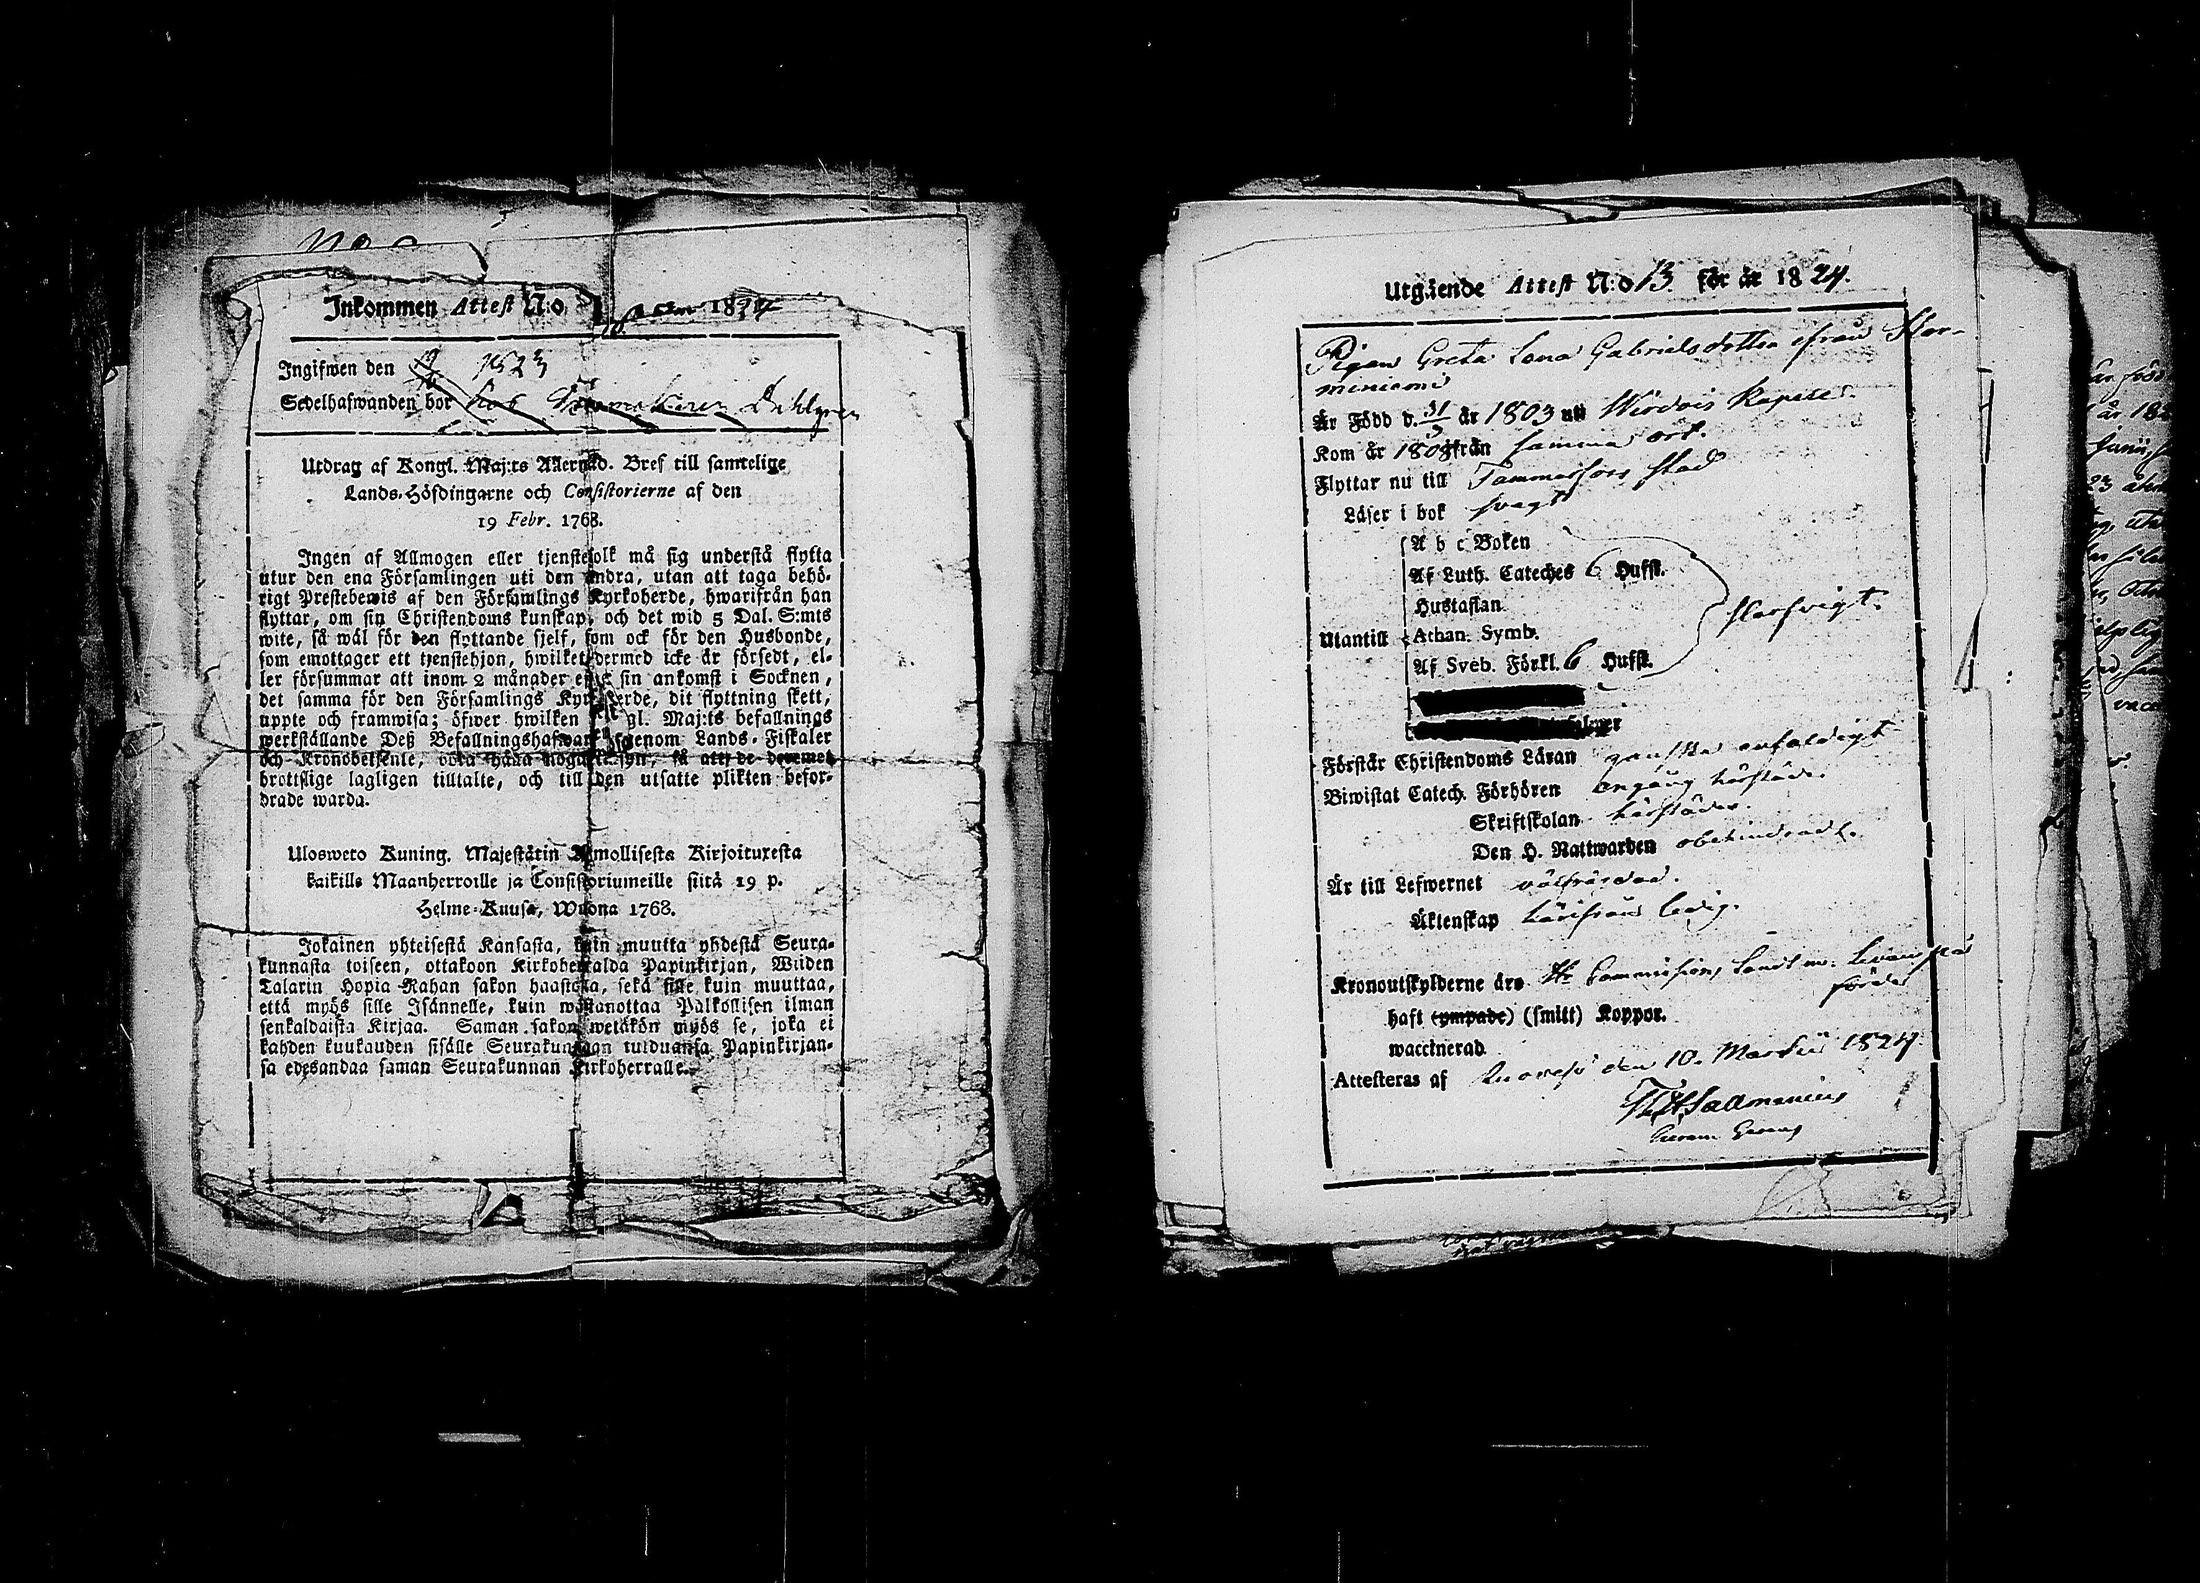 Inkommen Attest N:o 1824
Ingifwen den 19 1823
Sedelhafwanden bor hos Dahlgren
Utdrag af Kongl. Maj:ts Allernåd. Bref till samtelige
Lands-Höfdingarne och Consistorierne af den
19 Febr. 1768.
Ingen af Allmogen eller tjenstefolk må sig understå flytta
utur den ena Församlingen uti den andra, utan att taga behö-
rigt Prestebewis af den Församlings Kyrkoherde, hwarifrån han
flyttar, om sin Christendoms kunskap, och det wid 5 Dal. S:mts
wite, så wäl för den flyttande sjelf, som ock för den Husbonde,
som emottager ett tjenstehjon, hwilket dermed icke är försedt, el-
ler försummar att inom 2 månader efter sin ankomst i Socknen,
det samma för den Församlings Kyrkoherde, dit flyttning skett,
uppte och framwisa; öfwer hwilken Kongl. Maj:ts befallnings
werkställande Deß Befallningshafwande genom Lands-Fiskaler
och Kronobetjente, böra hålla noga tilsyn, så att de deremot
brottslige lagligen tilltalte, och till den utsatte plikten befor-
drade warda.
Ulosweto Kuning. Majestätin Armollisesta Kirjoituxesta
kaikille Maanherroille ja Consistoriumeille siitä 19 p.
Helme-Kuusa, Wuona 1768.
Jokainen yhteisestä Kansasta, kuin muutta yhdestä Seura-
kunnasta toiseen, ottakoon Kirkoherralda Papinkirjan, Wiiden
Talarin Hopia-Rahan sakon haastolla, sekä sille kuin muuttaa,
että myös sille Isännelle, kuin wastanottaa Palkollisen ilman
senkaldaista Kirjaa. Saman sakon wetäkön myös se, joka ei
kahden kuukauden sisälle Seurakundaan tulduansa Papinkirjan-
sa edesandaa saman Seurakunnan Kirkoherralle.
Utgående Attest N:o 13 för år 1824.
Pigan Greta Lena Gabrielsdotter ifrån Stor-
miniemi
Är Född d. 31 år 1803 uti Wirdois Kapell.
Kom år 1808 från samma ort.
Flyttar nu till Tammerfors stad
Läser i bok svagt
A b c Boken
Af Luth. Cateches 6 Hufst.
Hustaflan
Utantill Athan. Symb. slarfvigt.
Af Sveb. Förkl. 6 Hufst.
Förstår Christendoms Läran ganska enfaldigt
Biwistat Catech. Förhören en gång härstädes.
Skriftskolan härstädes.
Den H. Nattwarden obehindradt.
Är till Lefwernet välfräjdad.
Äktenskap härifrån ledig.
Kronoutskylderne äro Commission, Landtm.
haft (ympade) (smitt) Koppor.
waccinerad
Attesteras af Ruovesi den 10. Martii 1824.
Sallmenius